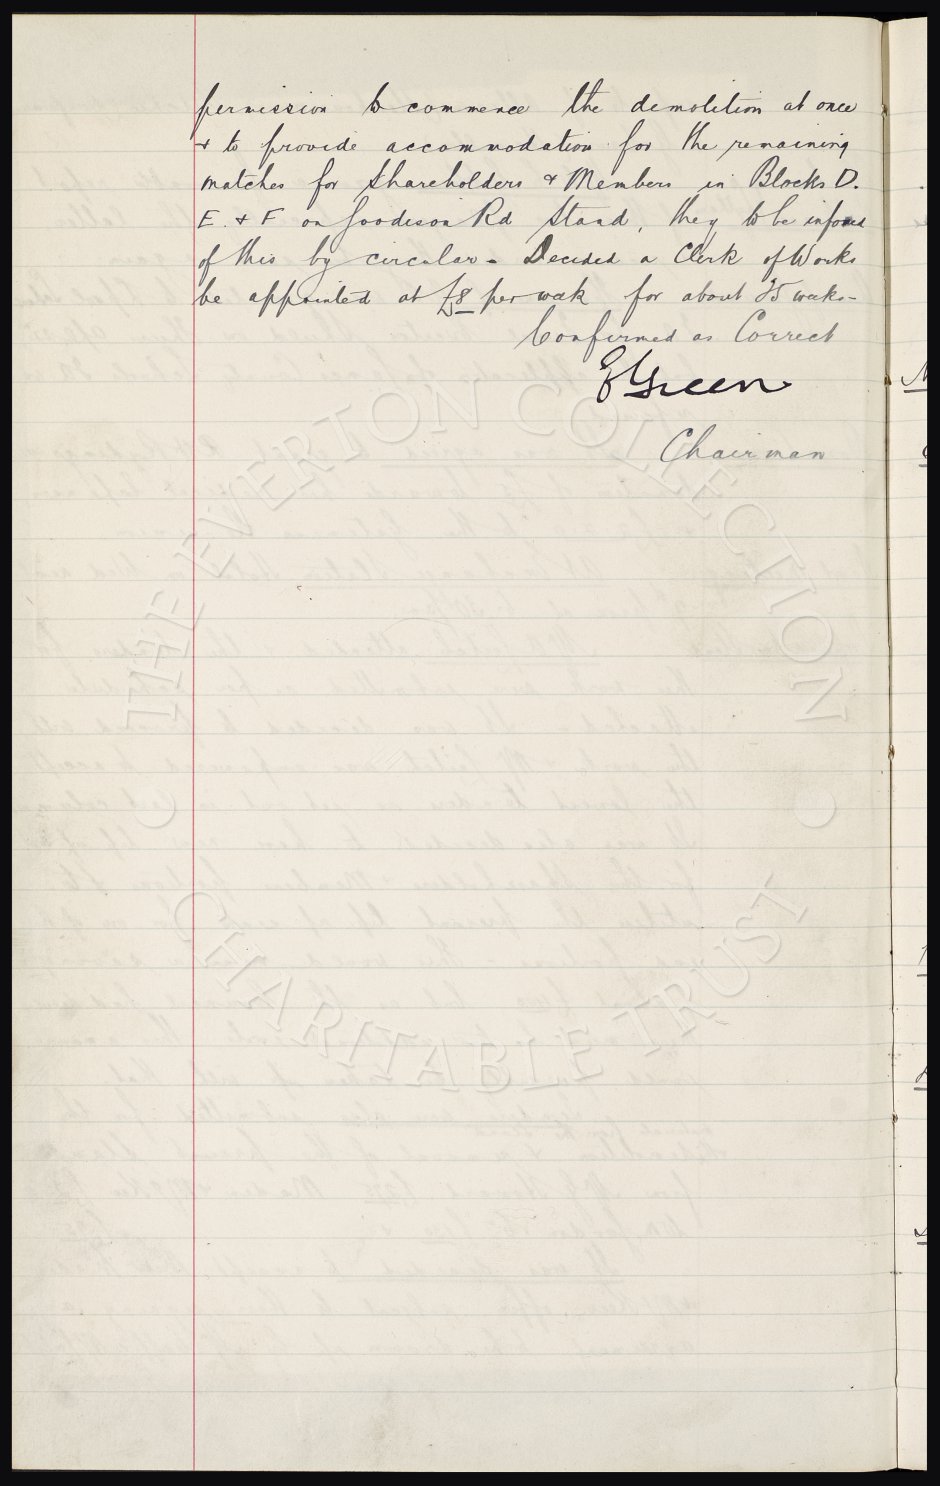 permission to commence the demolition at once
& to provide accommodation for the remaining
matches for Shareholders & Members in Blocks D.
E. & F on Goodison Rd Stand, they to be informed
of this by circular - Decided a Clerk of Works
be appointed at £8 per week for about 25 weeks -
Confirmed as Correct
E Green
Chairman
THE EVERTON COLLECTION
CHARITABLE TRUST